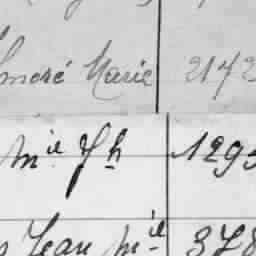 Marie 2142
Mie Jh 1293
Jean Mie 378